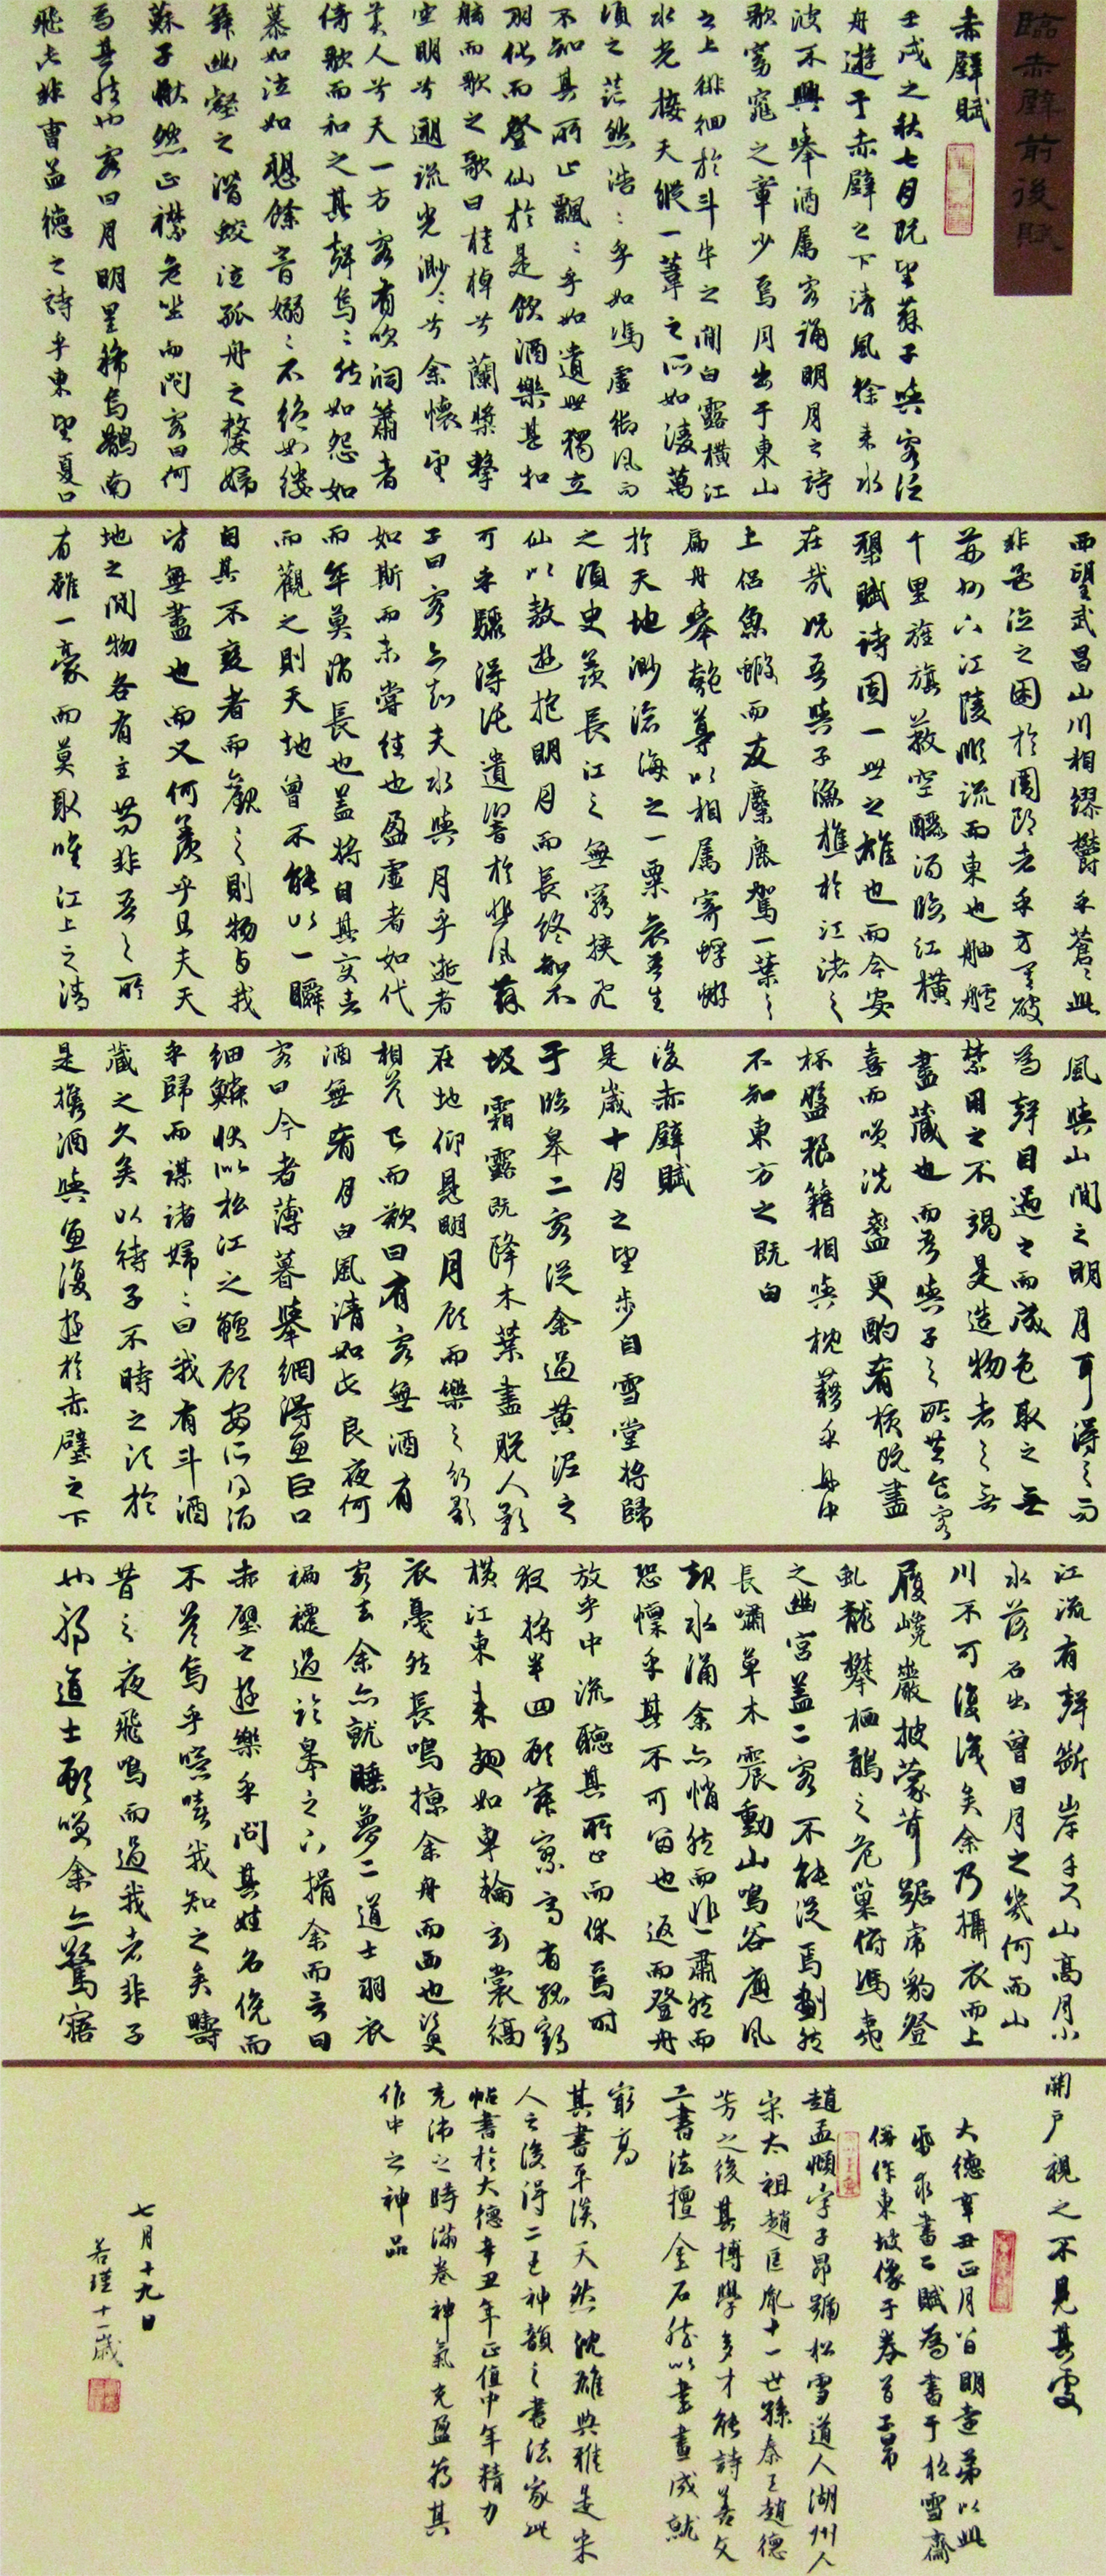 臨赤壁前後賦
赤壁賦
壬戌之秋七月既望蘇子與客泛
舟遊于赤壁之下清風徐来水
波不興舉酒属客誦明月之詩
歌窈窕之章少焉月出于東山
之上徘徊於斗牛之間白露横江
水光接天縱一葦之所如凌萬
頃之茫然浩:乎如馮虛御風而
不知其所止飄:乎如遺世獨立
羽化而登仙於是飲酒樂甚扣
舷而歌之歌曰桂棹兮蘭槳擊
空明兮遡流光渺:兮余懷望
美人兮天一方客有吹洞簫者
倚歌而和之其聲烏:然如怨如
慕如泣如愬餘音嫋:不絕如縷
舞幽壑之潛蛟泣孤舟之嫠婦
蘇子愀然正襟危坐而問客曰何
為其然也客曰月明星稀烏鵲南
飛此非曹孟德之詩乎東望夏口
西望武昌山川相繆鬱乎蒼:此
非孟德之困於周郎者乎方其破
荊州下江陵順流而東也舳艫
千里旌旗蔽空釃酒臨江橫
槊賦詩固一世之雄也而今安
在哉况吾與子漁樵於江渚之
上侶魚蝦而友麋鹿駕一葉之
扁舟舉匏尊以相属寄蜉蝣
於天地渺滄海之一粟哀吾生
之須臾羡長江之無窮挟飛
仙以遨遊抱明月而長終知不
可乎驟得託遺響於悲風蘇
子曰客亦知夫水與月乎逝者
如斯而未嘗往也盈虛者如代
而卒莫消長也蓋將自其變者
而觀之則天地曾不能以一瞬
自其不變者而觀之則物與我
皆無盡也而又何羨乎且夫天
地之間物各有主苟非吾之所
有雖一豪而莫取唯江上之清
風與山間之明月耳得之而
為聲目遇之而成色取之無
禁用之不竭是造物者之無
盡藏也而吾與子之所共食客
喜而笑洗盞更酌肴核既盡
杯盤狼籍相與枕藉乎舟中
不知東方之既白
後赤壁賦
是歲十月之望步自雪堂將歸
于臨皋二客從余過黄泥之
坂霜露既降木葉盡脱人影
在地仰見明月顧而樂之行歌
相答已而歎曰有客無酒有
酒無肴月白風清如此良夜何
客曰今者薄暮舉網得魚巨口
細鱗状似松江之鱸顧安所得酒
乎歸而謀諸婦:曰我有斗酒
藏之久矣以待子不時之須於
是攜酒與魚復遊於赤壁之下
江流有聲斷岸千尺山高月小
水落石出曾日月之幾何而山
川不可復識矣余乃攝衣而上
履巉巖披蒙茸踞虎豹登
虬龍攀栖鶻之危巢俯馮夷
之幽宮蓋二客不能從焉劃然
長嘯草木震動山鳴谷應風
起水涌余亦悄然而悲肅然而
恐懔乎其不可留也返而登舟
放乎中流聽其所止而休焉時
夜將半四顧寂寥適有孤鶴
橫江東来翅如車輪玄裳縞
衣戛然長鳴掠余舟而西也須臾
客去余亦就睡夢二道士羽衣
褊褼過臨皋之下揖余而言曰
赤壁之遊樂乎問其姓名俛而
不答烏乎噫嘻我知之矣疇
昔之夜飛鳴而過我者非子
也耶道士顧笑余亦驚寤
開戶視之不見其處
大德辛丑正月八日明遠弟以此
紙求書二賦為書于松雪齋
併作東坡像于卷首子昂
趙孟頫字子昂號松雪道人湖州人
宋太祖趙匡胤十一世孫秦王趙德
芳之後其博學多才能詩善文
工書法擅金石然以書畫成就
最高
其書平淡天然沈雄典雅是宋
人之後得二王神韻之書法家此
帖書於大德辛丑年正值中年精力
充沛之時滿卷神氣充盈為其
作中之神品
七月十九日
若瑾十一歲